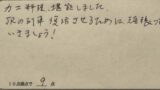 カニ料理、堪能しました。
JRの列車 復活させるために 頑張って
いきましょう!
10点満点で 9 点